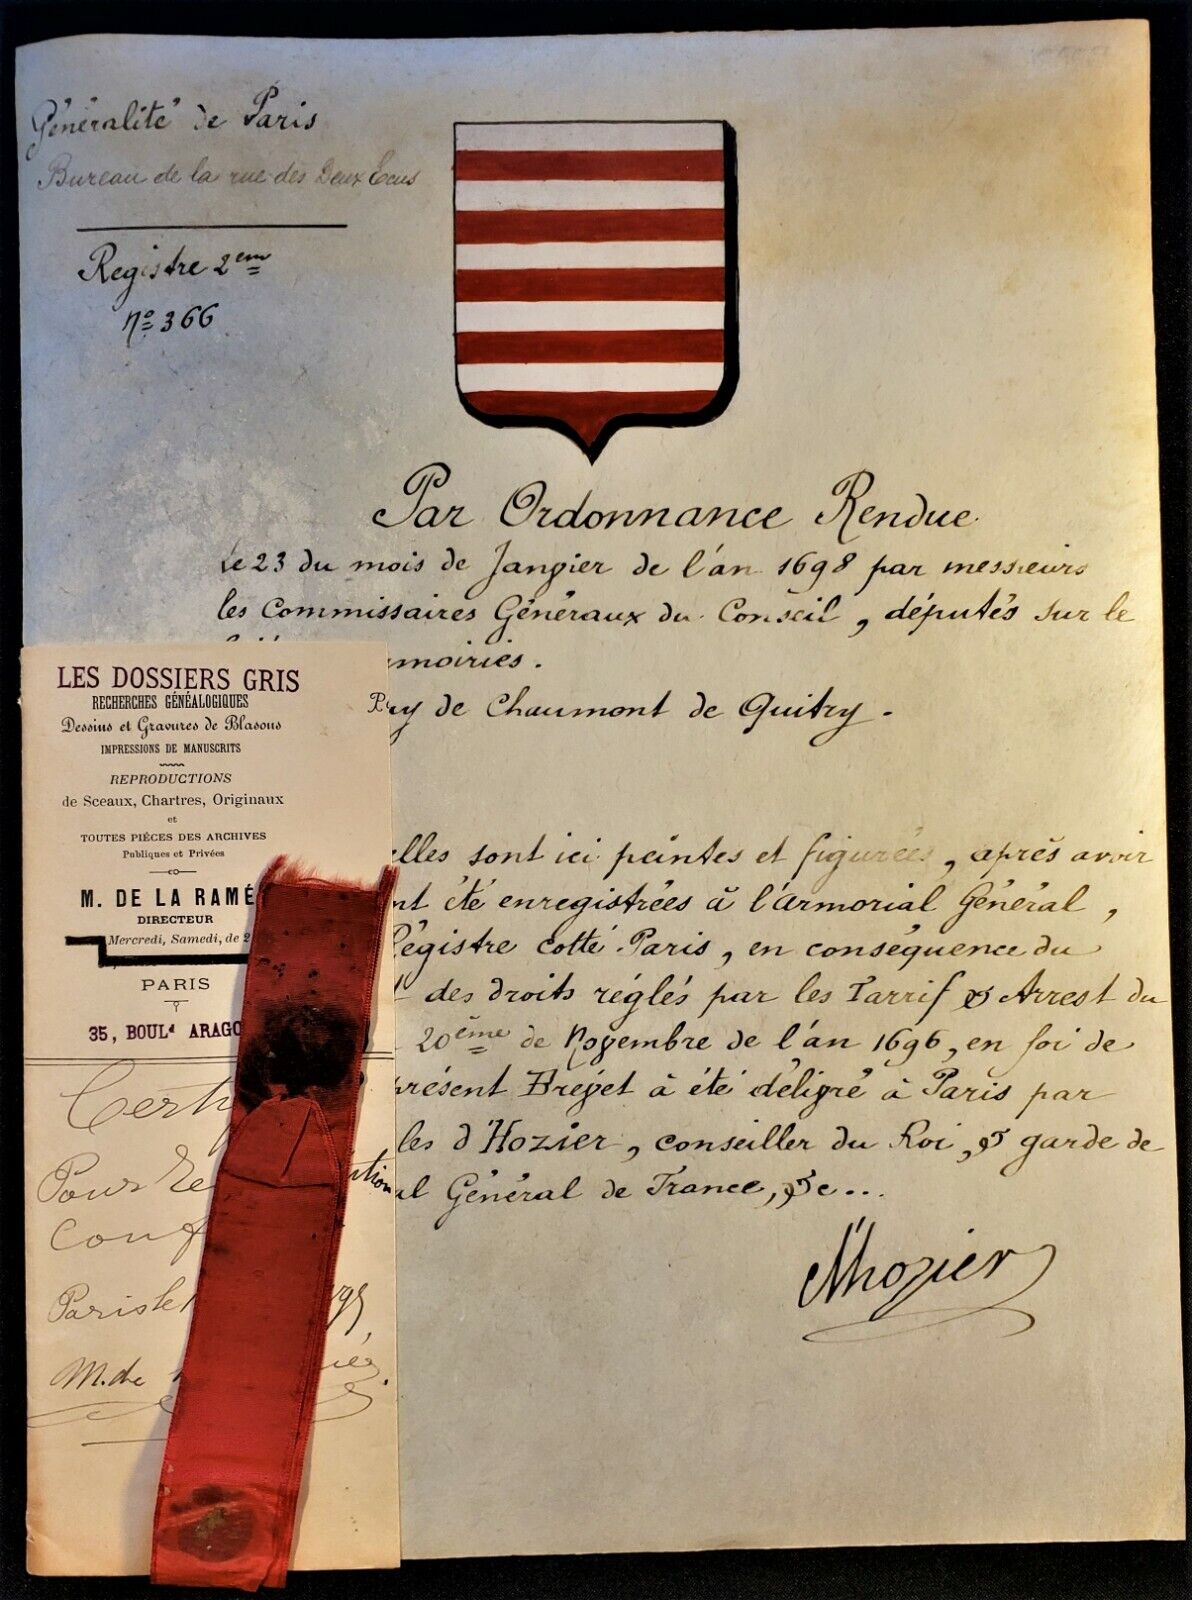 Généralité de Paris
Bureau de la rue des Deux Ecus
Registre 2em
no 366
Par Ordonnance Rendue
Le 23 du mois de Janvier de l'án 1698 par messieurs
les Commissaires Généraux du Conseil, députés sur le
moiries.
Ruy de Chaumont de Quitry.
elles sont ici peintes et figurées, aprés avoir
nt été enregistrées à l'armorial Général,
Régistre cotté Paris, en conséquence du
des droits réglés par les Tarrif & Arrest du
20ème de Novembre de l'án 1696, en foi de
présent Brevet à été déligré à Paris par
les d'Hozier, conseiller du Roi, & garde de
al Général de France, &c...
d'hozier
LES DOSSIERS GRIS
RECHERCHES GÉNÉALOGIQUES
Dessins et Gravures de Blasons
IMPRESSIONS DE MANUSCRITS
REPRODUCTIONS
de Sceaux, Chartres, Originaux
et
TOUTES PIÈCES DES ARCHIVES
Publiques et Privées
M. DE LA RAMÉ
DIRECTEUR
Mercredi, Samedi, de 2
PARIS
35, BOULd ARAGO
Certi
Pour Re ption
Conf
Paris le
M. de